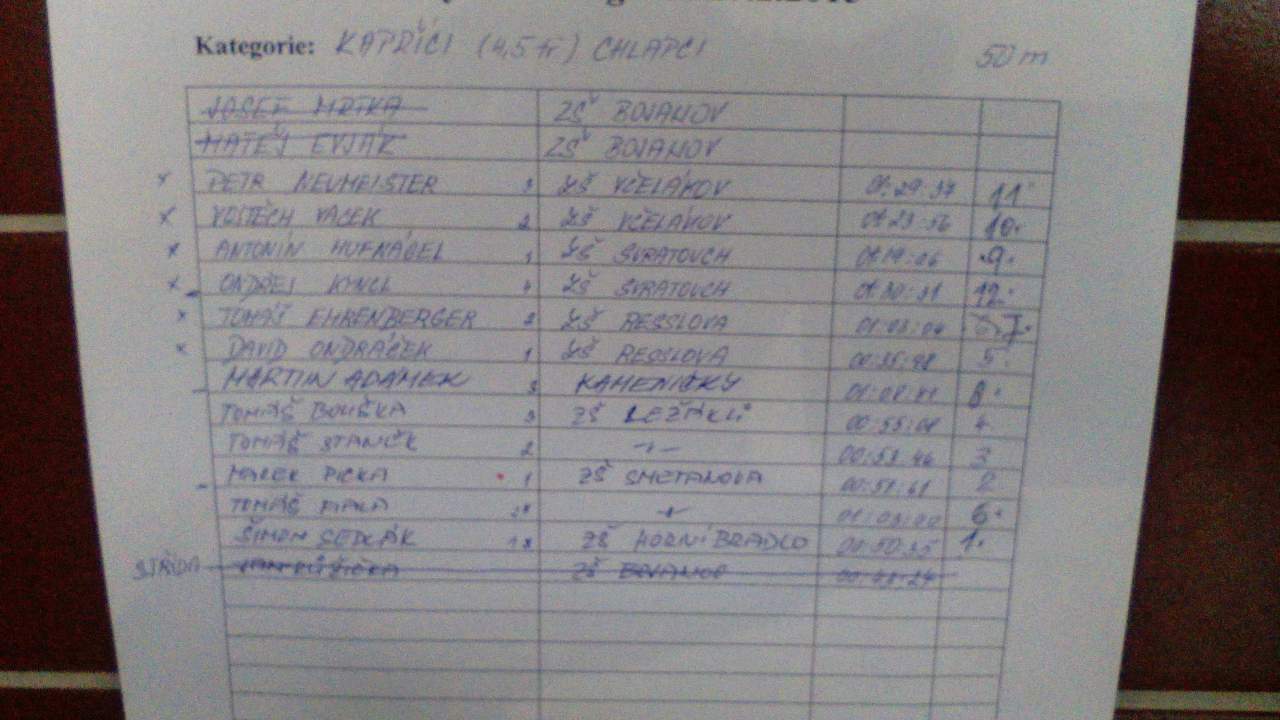 Kategorie: KAPŘÍCI (4,5 tř) CHLAPCI 50 m
JOSEF MRTKA ZŠ BOJANOV
MATĚJ EVJÁK ZŠ BOJANOV
x PETR NEUMEISTER 3 ZŠ VČELÁKOV 01:29:37 11.
x VOJTĚCH VACEK 2 ZŠ VČELÁKOV 01:23:56 10.
x ANTONÍN HUFNÁGEL 1 ZŠ SVRATOUCH 01:19:06 9.
x ONDŘEJ KYNCL 4 ZŠ SVRATOUCH 01:30:31 12.
x TOMÁŠ EHRENBERGER 2 ZŠ RESSLOVA 01:03:04 7.
x DAVID ONDRÁČEK 1 ZŠ RESSLOVA 00:55:48 5.
MARTIN ADÁMEK 3 KAMENIČKY 01:08:41 8.
TOMÁŠ BOUŠKA 3 ZŠ LEŽÁKŮ 00:55:08 4.
TOMÁŠ STANĚK 2 -"- 00:53:46 3
MAREK PICKA 1 ZŠ SMETANOVA 00:51:61 2
TOMÁŠ -"- 01:03:00 6.
ŠIMON SEDLÁK ZŠ HORNÍ BRADLO 00:50:35 1.
STŘÍDA JAN RŮŽIČKA ZŠ BOJANOV 00:43:24